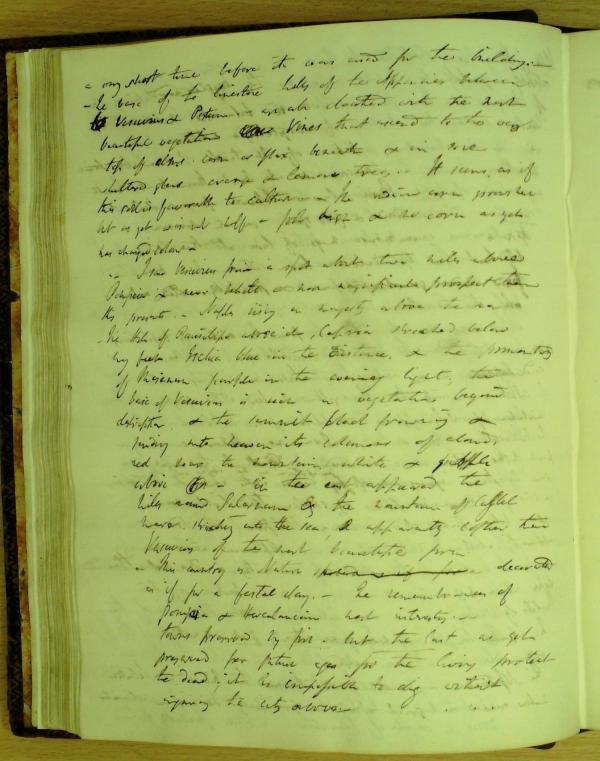 a very short time before it was used for the building. -
- The base of the limestone hills of the Appenines between
Vesuvius & Pestum - are all clothed with the most
beautiful vegetation Vines that ascend to the very
top of elms corn or flax beneath & in some
sheltered glens orange & lemon trees. - It seems as if
this soil is favourable to culture - the indian corn grows here
but as yet is not half - foot high & the corn as yet
has changed colour -
- I saw Vesuvius from a spot about two miles above
Pompeia & never beheld a more magnificent prospect than
this presents. - Naples rising in majesty above the sea
- the Hills of Pausilipo above it, Capria stretched below
my feet Ischia blue in the distance, & the promontory
of Misenum purple in the evening light; the
base of Vesuvius is rich in vegetation beyond
description, & the summit black frowning &
sending unto heaven its columns of clouds
red near the mountain, white & purple
above - In the east appeared the
hills round Salernum & the mountain of Castel
mare stretching into the sea, & apparently loftier than
Vesuvius of the most beautiful form
- This country is Nature decorated
as if for a festal day. - The remembrances of
Pompeia & Herculaneum most interesting. -
towns preserved by fire - but the last as yet
preserved for future ages for the living protect
the dead; it is impossible to dig without
injuring the city above